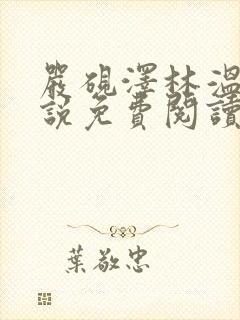 嚴硯澤林溫
說免費閱讀
葉敬忠